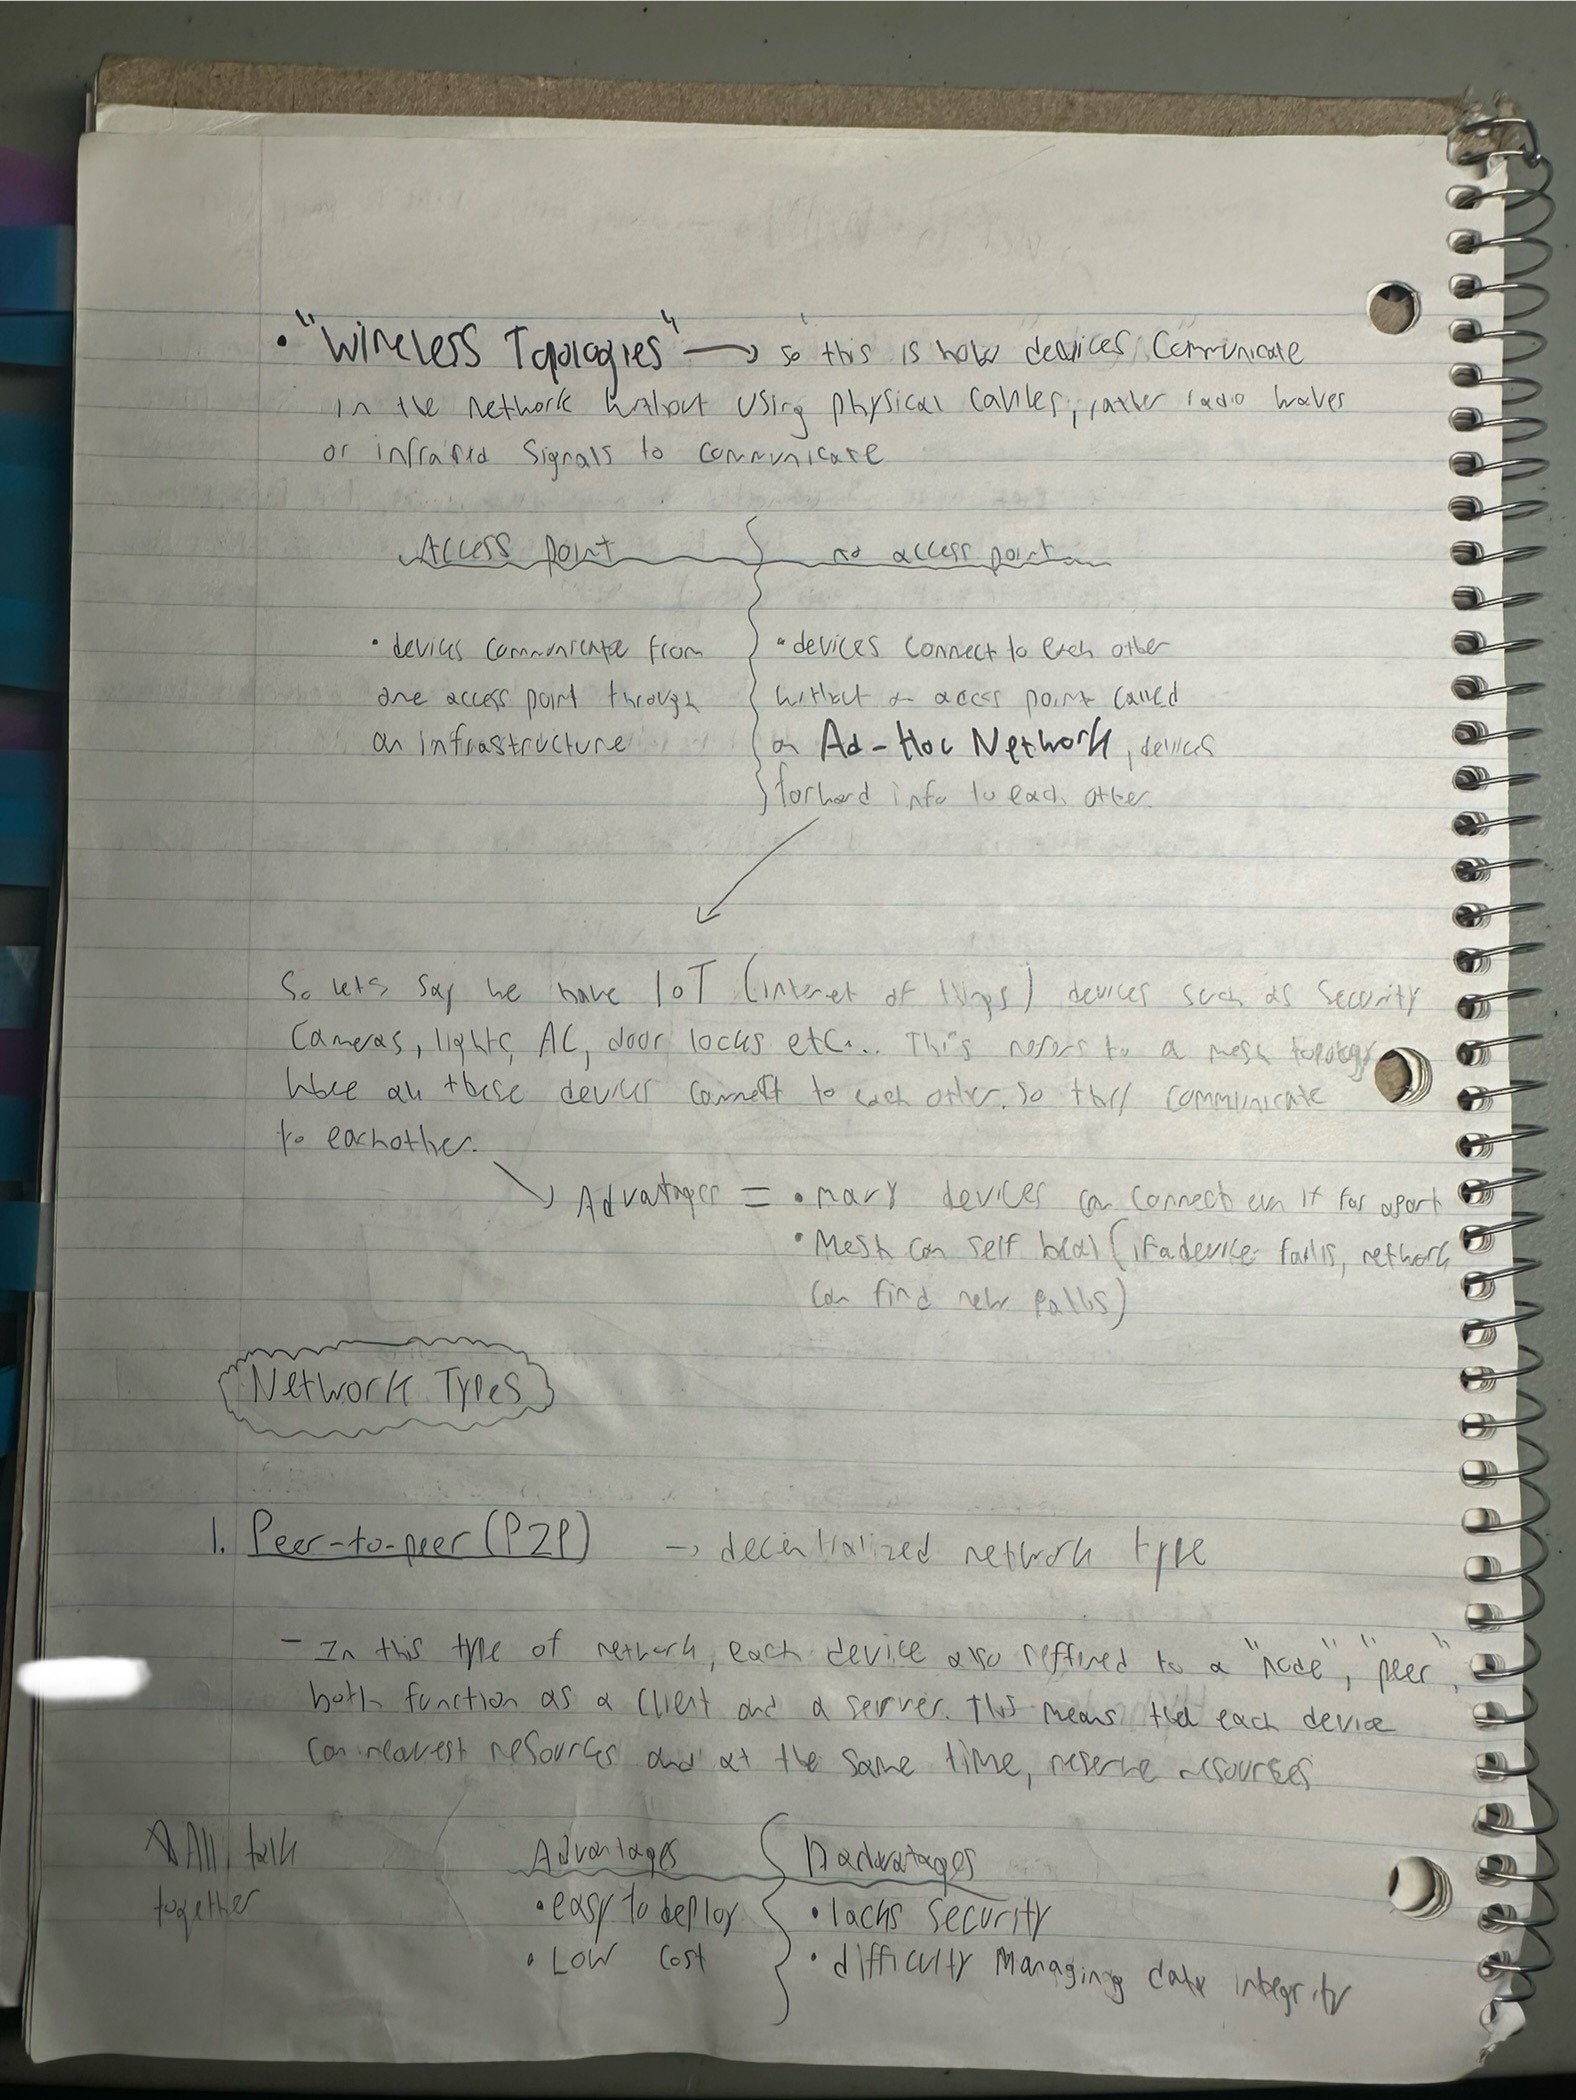 • "Wireless Topologies" → so this is how devices communicate
in the network without using physical cables, rather radio waves
or infrared signals to communicate
Access point
no access point
• devices communicate from
one access point through
an infrastructure
• devices connect to each other
without an acces point called
an Ad-Hoc Network, devices
forward info to each other
So lets say we have IoT (internet of things) devices such as security
Cameras, lights, AC, door locks etc... This refers to a mesh topology
where all these devices connect to each other. So they communicate
to eachother.
Advantages = • many devices can connect even if far apart
• Mesh can self heal (if a device fails, network
can find new paths)
Network Types
1. Peer-to-peer (P2P) → decentralized network type
- In this type of network, each device also reffered to a "node", "peer",
both function as a client and a server. This means that each device
can request resources and at the same time, reserve resources
All talk
together
Advantages
• easy to deploy
• Low cost
• lacks security
• difficulty Managing data integrity